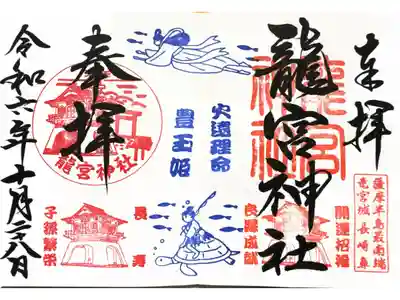 奉拝
龍宮神社
龍宮
神社
薩摩半島最南端
竜宮城 長崎鼻
開運招福
良縁成就
火遠理命
豊玉姫
奉拝
龍宮神社
長寿
子孫繁栄
令和六年十月二十八日